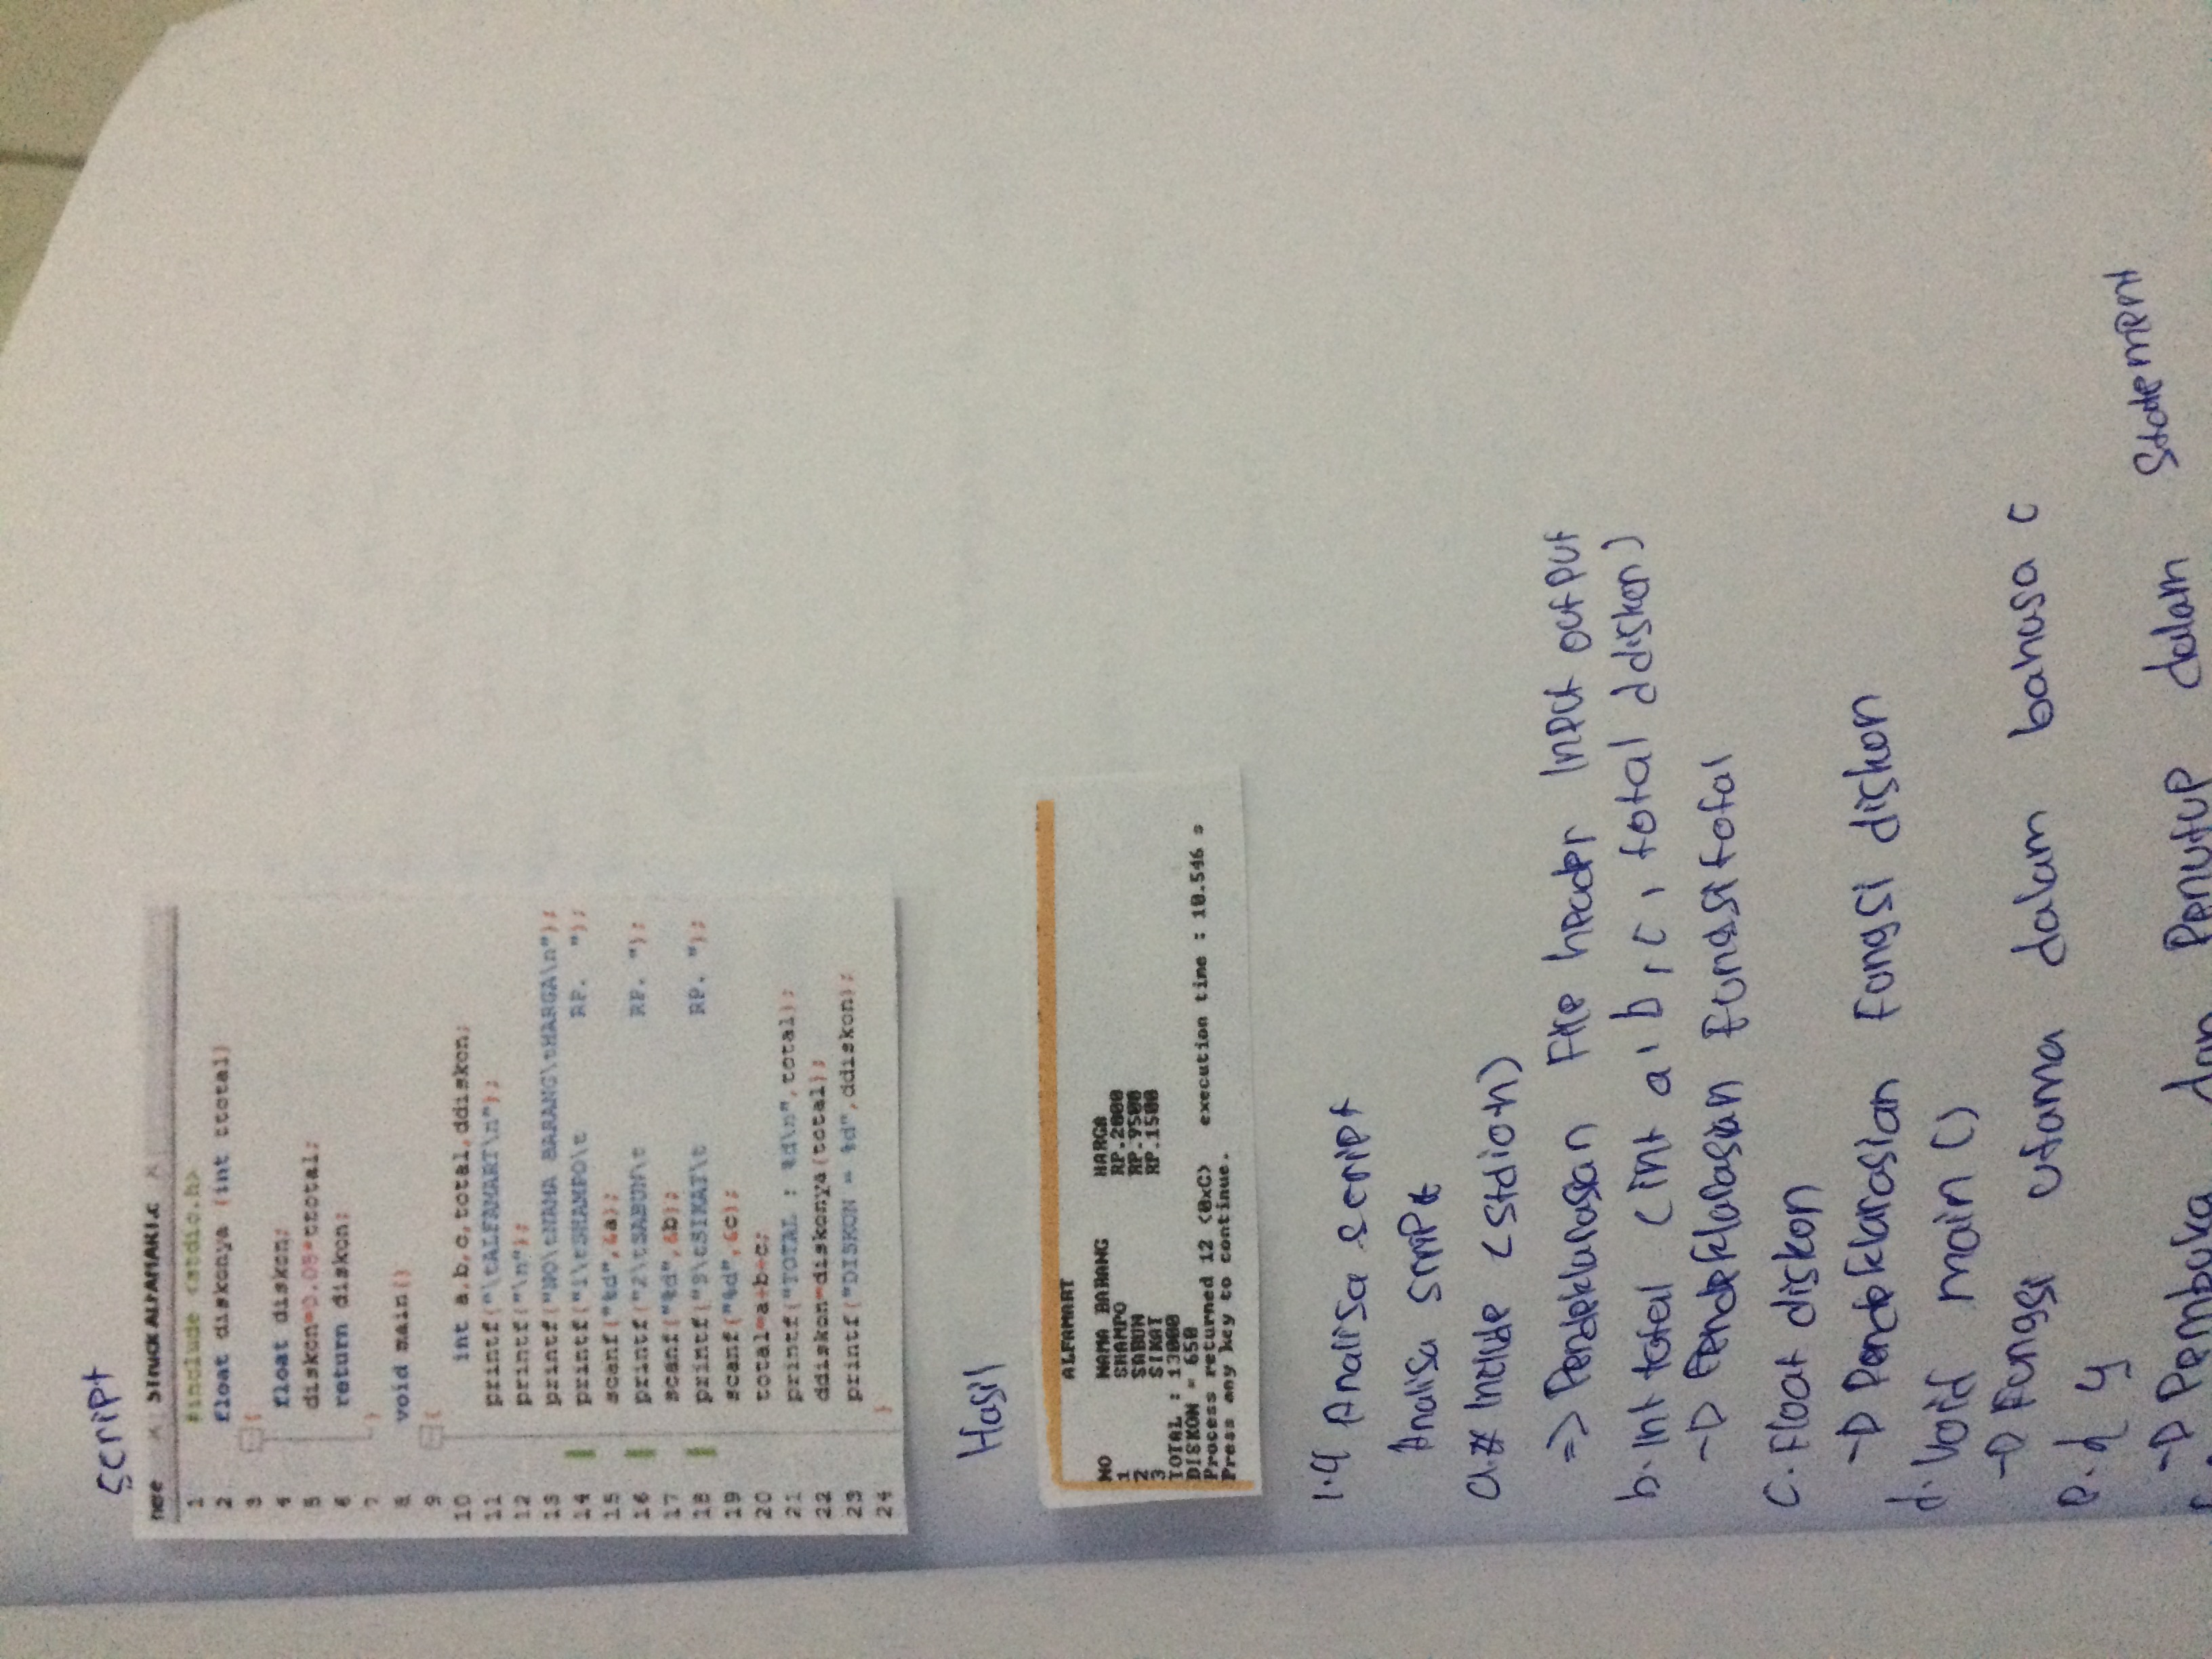 script
here × STRUCK ALFAMART.c ×
1 #include <stdio.h>
2 float diskonya (int ttotal)
3 {
4 float diskon;
5 diskon=0.05*ttotal;
6 return diskon;
7 }
8 void main()
9 {
10 int a,b,c,total,ddiskon;
11 printf("\tALFAMART\n");
12 printf("\n");
13 printf("NO\tNAMA BARANG\tHARGA\n");
14 printf("1\tSHAMPO\t RP. ");
15 scanf("%d",&a);
16 printf("2\tSABUN\t RP. ");
17 scanf("%d",&b);
18 printf("3\tSIKAT\t RP. ");
19 scanf("%d",&c);
20 total=a+b+c;
21 printf("TOTAL : %d\n",total);
22 ddiskon=diskonya(total);
23 printf("DISKON = %d",ddiskon);
24 }
Hasil
ALFAMART
NO NAMA BARANG HARGA
1 SHAMPO RP.2000
2 SABUN RP.9500
3 SIKAT RP.1500
TOTAL : 13000
DISKON = 650
Process returned 12 (0xC) execution time : 10.546 s
Press any key to continue.
1.4 Analisa script
Analisa script
a. # Include (stdio.h)
=> Pendeklarasian File header Input output
b. Int total (int a, b, c, total ddiskon)
-> Pendeklarasian Fungsi total
c. Float diskon
-> Pendeklarasian Fungsi diskon
d. Void main ()
-> Fungsi utama dalam bahasa c
e. { }
-> Pembuka dan Penutup dalam Statement